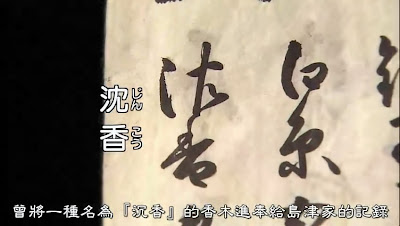 沈香
じんこう
沈香
曾將一種名為『沉香』的香木進奉給島津家的記錄